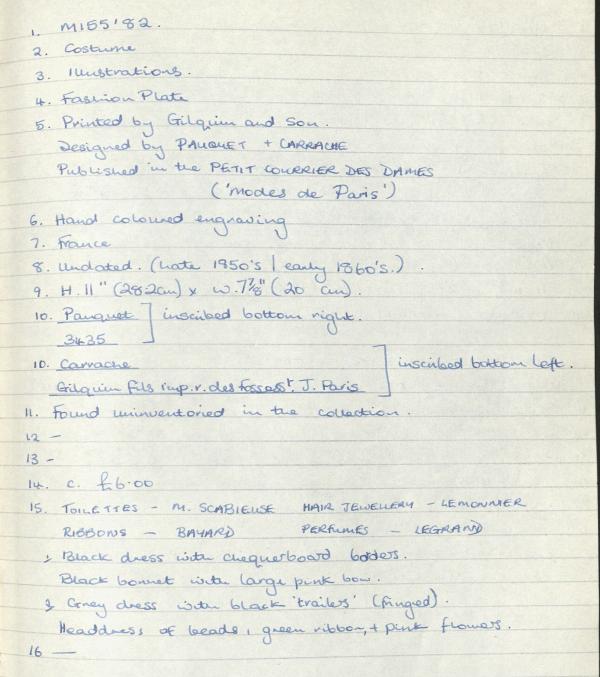 1. M155'82.
2. Costume
3. Illustrations.
4. Fashion Plate
5. Printed by Gilquin and Son.
Designed by PAUQUET + CARRACHE
Published in the PETIT COURRIER DES DAMES
('Modes de Paris')
6. Hand coloured engraving
7. France
8. Undated. (Late 1850's / early 1860's.).
9. H. 11" (28.2cm) x W. 7⅞" (20 cm).
10. Pauquet ] inscribed bottom right.
3435
10. Carrache
Gilquin fils imp. r. des fossés J. Paris ] inscribed bottom left.
11. Found uninventoried in the collection.
12 -
13 -
14. c. £6.00
15. TOILETTES - M. SCABIEUSE HAIR JEWELLERY - LEMONNIER
RIBBONS - BAYARD PERFUMES - LEGRAND
1, Black dress with chequerboard borders.
Black bonnet with large pink bow.
2, Grey dress with black 'trailers' (fringed).
Headdress of beads, green ribbon, + pink flowers.
16 —